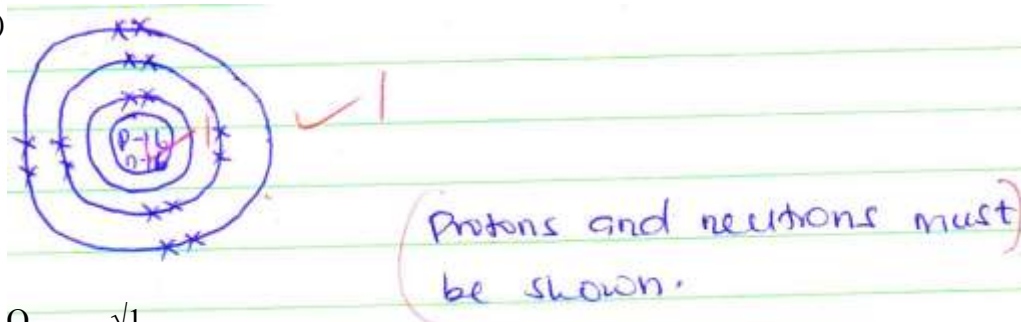 )
P-16
n-16
1
✓ 1
(Protons and neutrons must)
be shown.
Q √1